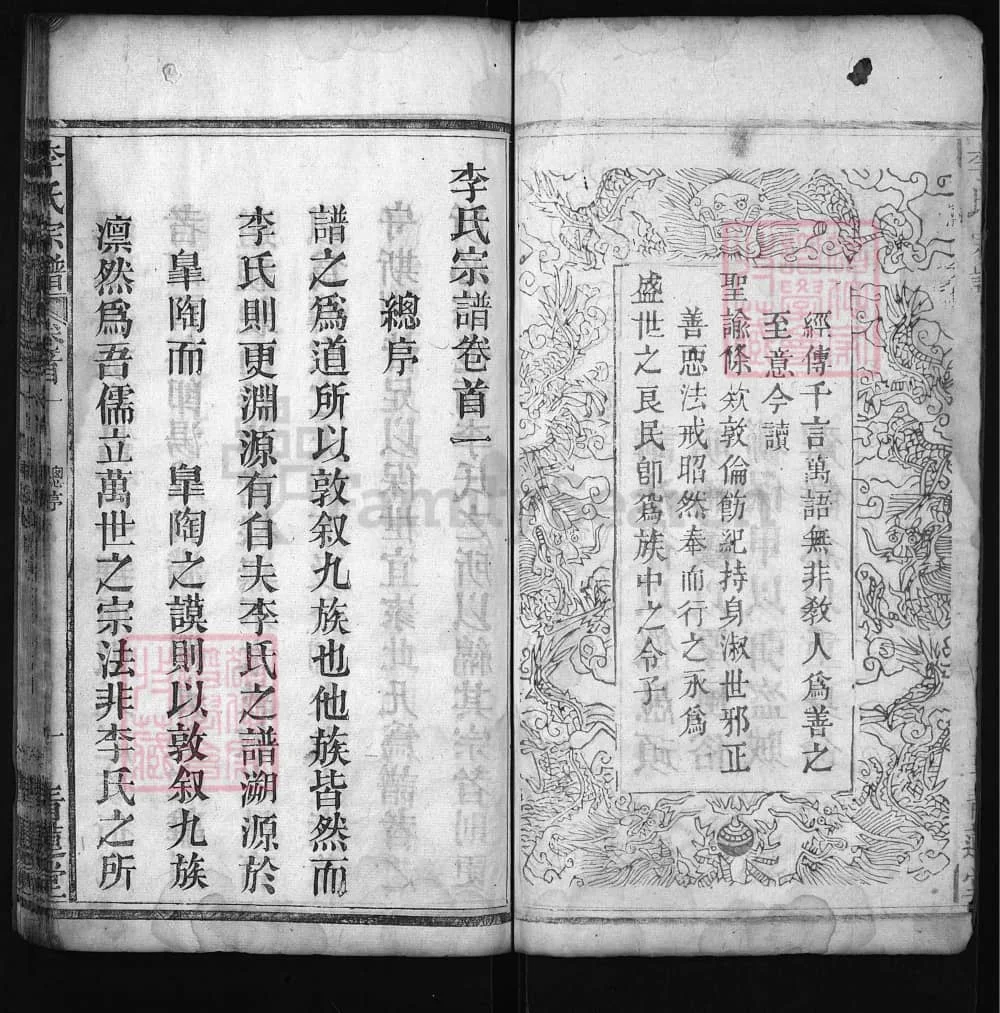 經傳千言萬語無非教人爲善之
至意今讀
聖諭條欸敦倫飭紀持身淑世邪正
善惡法戒昭然奉而行之永爲
盛世之良民師爲族中之令子
李氏宗譜卷首一
總序
譜之爲道所以敦叙九族也他族皆然而
李氏則更淵源有自夫李氏之譜溯源於
臯陶而 臯陶之謨則以敦叙九族
凛然爲吾儒立萬世之宗法非李氏之所
李氏宗譜
卷首一
總序
一
FamilySearch